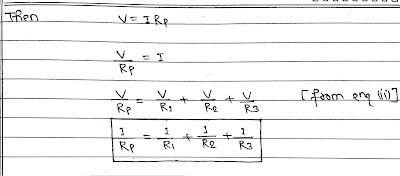 Then V = I Rp
V/Rp = I
V/Rp = V/R1 + V/R2 + V/R3 [from enq (ii)]
1/Rp = 1/R1 + 1/R2 + 1/R3